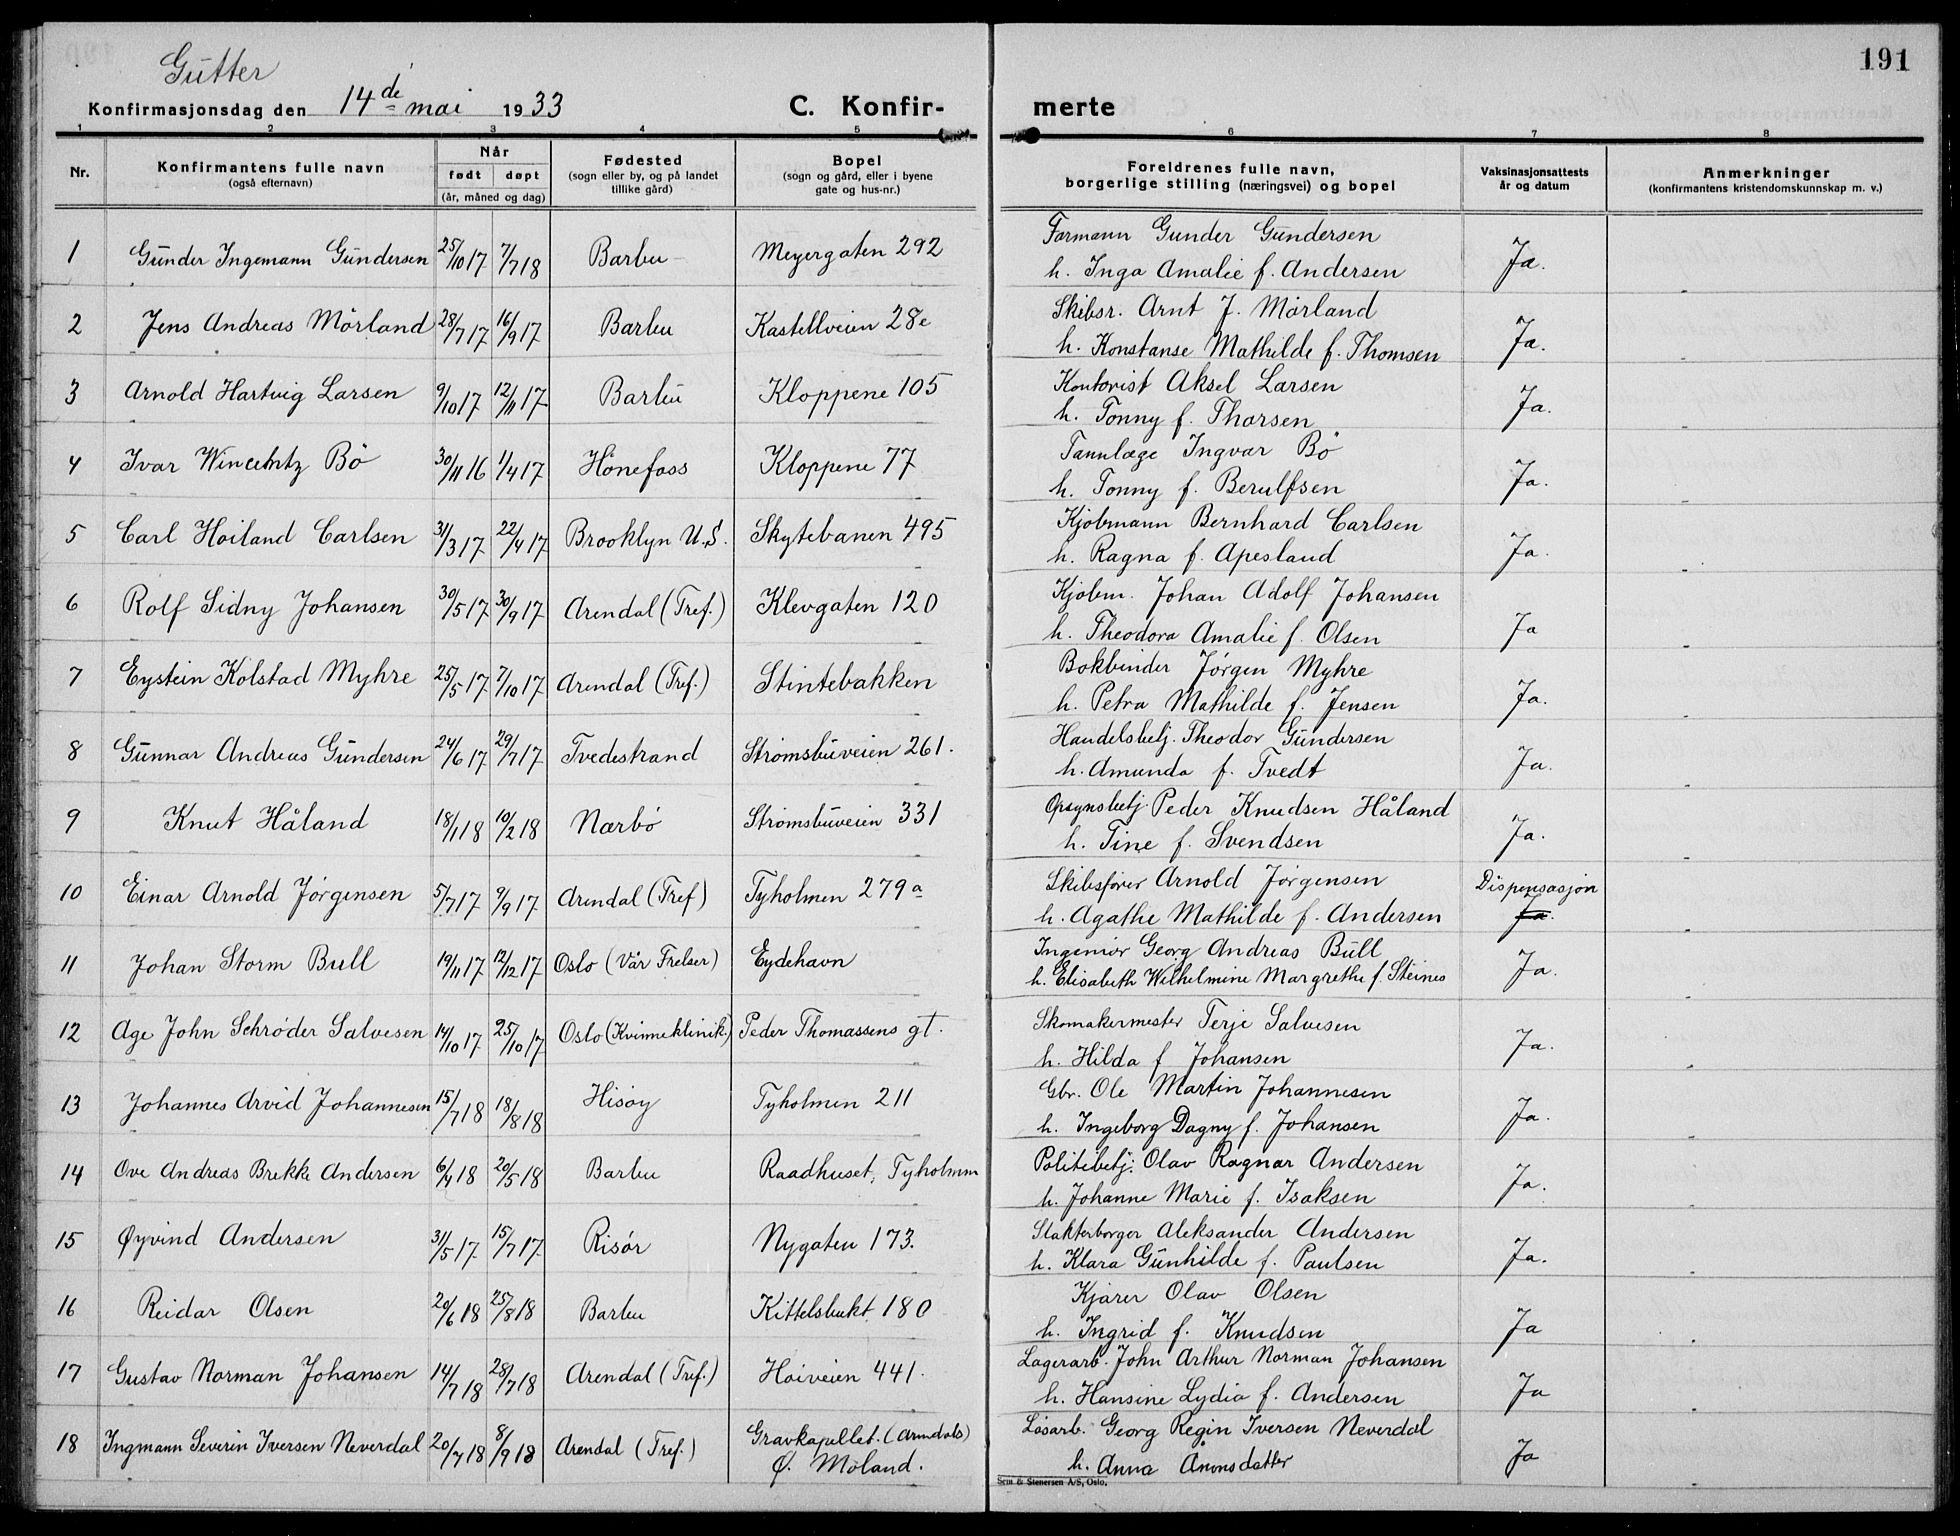 Gutter
191
Konfirmasjonsdag den 14de mai 1933 C. Konfir- merte
1 2 3 4 5 6 7 8
Nr. Konfirmantens fulle navn (også efternavn) Når født døpt (år, måned og dag) Fødested (sogn eller by, og på landet tillike gård) Bopel (sogn og gård, eller i byene gate og hus-nr.) Foreldrenes fulle navn, borgerlige stilling (næringsvei) og bopel Vaksinasjonsattests år og datum Anmerkninger (konfirmantens kristendomskunnskap m. v.)
1 Gunder Ingemann Gundersen 25/10 17 7/7 18 Barbu Meyergaten 292 Formann Gunder Gundersen Ja.
h. Inga Amalie f. Andersen
2 Jens Andreas Mörland 28/7 17 16/9 17 Barbu Kastellveien 28c Skibsr. Arnt J. Mörland Ja.
h. Konstanse Mathilde f. Thomsen
3 Arnold Hartvig Larsen 9/10 17 12/11 17 Barbu Kloppene 105 Kontorist Aksel Larsen Ja.
h. Tonny f. Thorsen
4 Ivar Wincentz Bö 30/11 16 1/4 17 Hönefoss Kloppene 77 Tannlæge Ingvar Bö Ja.
h. Tonny f. Berulfsen
5 Carl Hoiland Carlsen 31/3 17 22/4 17 Brooklyn U.S. Skytebanen 495 Kjobmann Bernhard Carlsen Ja.
h. Ragna f. Apesland
6 Rolf Sidny Johansen 30/5 17 30/9 17 Arendal (Tref.) Klevgaten 120 Kjobm. Johan Adolf Johansen Ja
h. Theodora Amalie f. Olsen
7 Eystein Kolstad Myhre 25/5 17 7/10 17 Arendal (Tref.) Stintebakken Bokbinder Jørgen Myhre Ja.
h. Petra Mathilde f. Jensen
8 Gunnar Andreas Gundersen 24/6 17 29/7 17 Tvedestrand Strømsbuveien 261. Handelsbetj. Theodor Gundersen Ja.
h. Amunda f. Tvedt
9 Knut Håland 18/1 18 10/2 18 Nærbö Strømsbuveien 331 Opsynsbetj. Peder Knudsen Håland Ja.
h. Tine f. Svendsen
10 Einar Arnold Jørgensen 5/7 17 9/9 17 Arendal (Tref) Tyholmen 279a Skibsfører Arnold Jørgensen Dispensasjon
h. Agathe Mathilde f. Andersen Ja.
11 Johan Storm Bull 19/11 17 12/12 17 Oslo (Vår Frelser) Eydehavn Ingeniør Georg Andreas Bull Ja.
h. Elisabeth Wilhelmine Margrethe f. Steines
12 Age John Schrøder Salvesen 14/10 17 25/10 17 Oslo (Kvinneklinik) Peder Thomassens gt. Skomakermester Terje Salvesen Ja.
h. Hilda f Johansen
13 Johannes Arvid Johannesen 15/7 18 18/8 18 Hisøy Tyholmen 211 Gbr. Ole Martin Johannesen Ja.
h. Ingeborg Dagny f. Johansen
14 Ove Andreas Brekke Andersen 6/4 18 20/5 18 Barbu Raadhuset, Tyholmen Politibetj. Olav Ragnar Andersen Ja.
h. Johanne Marie f. Isaksen
15 Øyvind Andersen 31/5 17 15/7 17 Risør Nygaten 173. Slakterborger Aleksander Andersen Ja.
h. Klara Gunhilde f. Paulsen
16 Reidar Olsen 20/6 18 25/8 18 Barbu Kittelsbukt 180 Kjører Olav Olsen Ja
h. Ingrid f. Knudsen
17 Gustav Norman Johansen 14/7 18 28/7 18 Arendal (Tref.) Hoiveien 441. Lagerarb. John Arthur Norman Johansen Ja
h. Hansine Lydia f. Andersen
18 Ingmann Severin Iversen Neverdal 20/4 18 8/9 18 Arendal (Tref.) Gravkapellet. (Arendals) Ø. Moland. Løsarb. Georg Regin Iversen Neverdal Ja
h. Anna Aronsdatter
Sem & Stenersen A/S, Oslo.